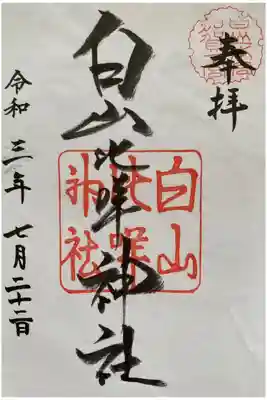 奉拝
白山比咩神社
白山
比咩
神社
令和三年 七月二十二日